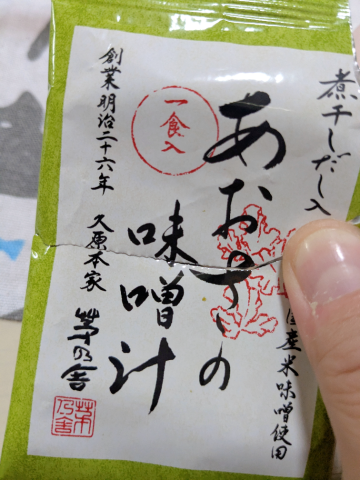 煮干しだし入
あおさの
味噌汁
一食入
産米味噌使用
創業明治二十六年
久原本家
茅乃舎
茅乃舎